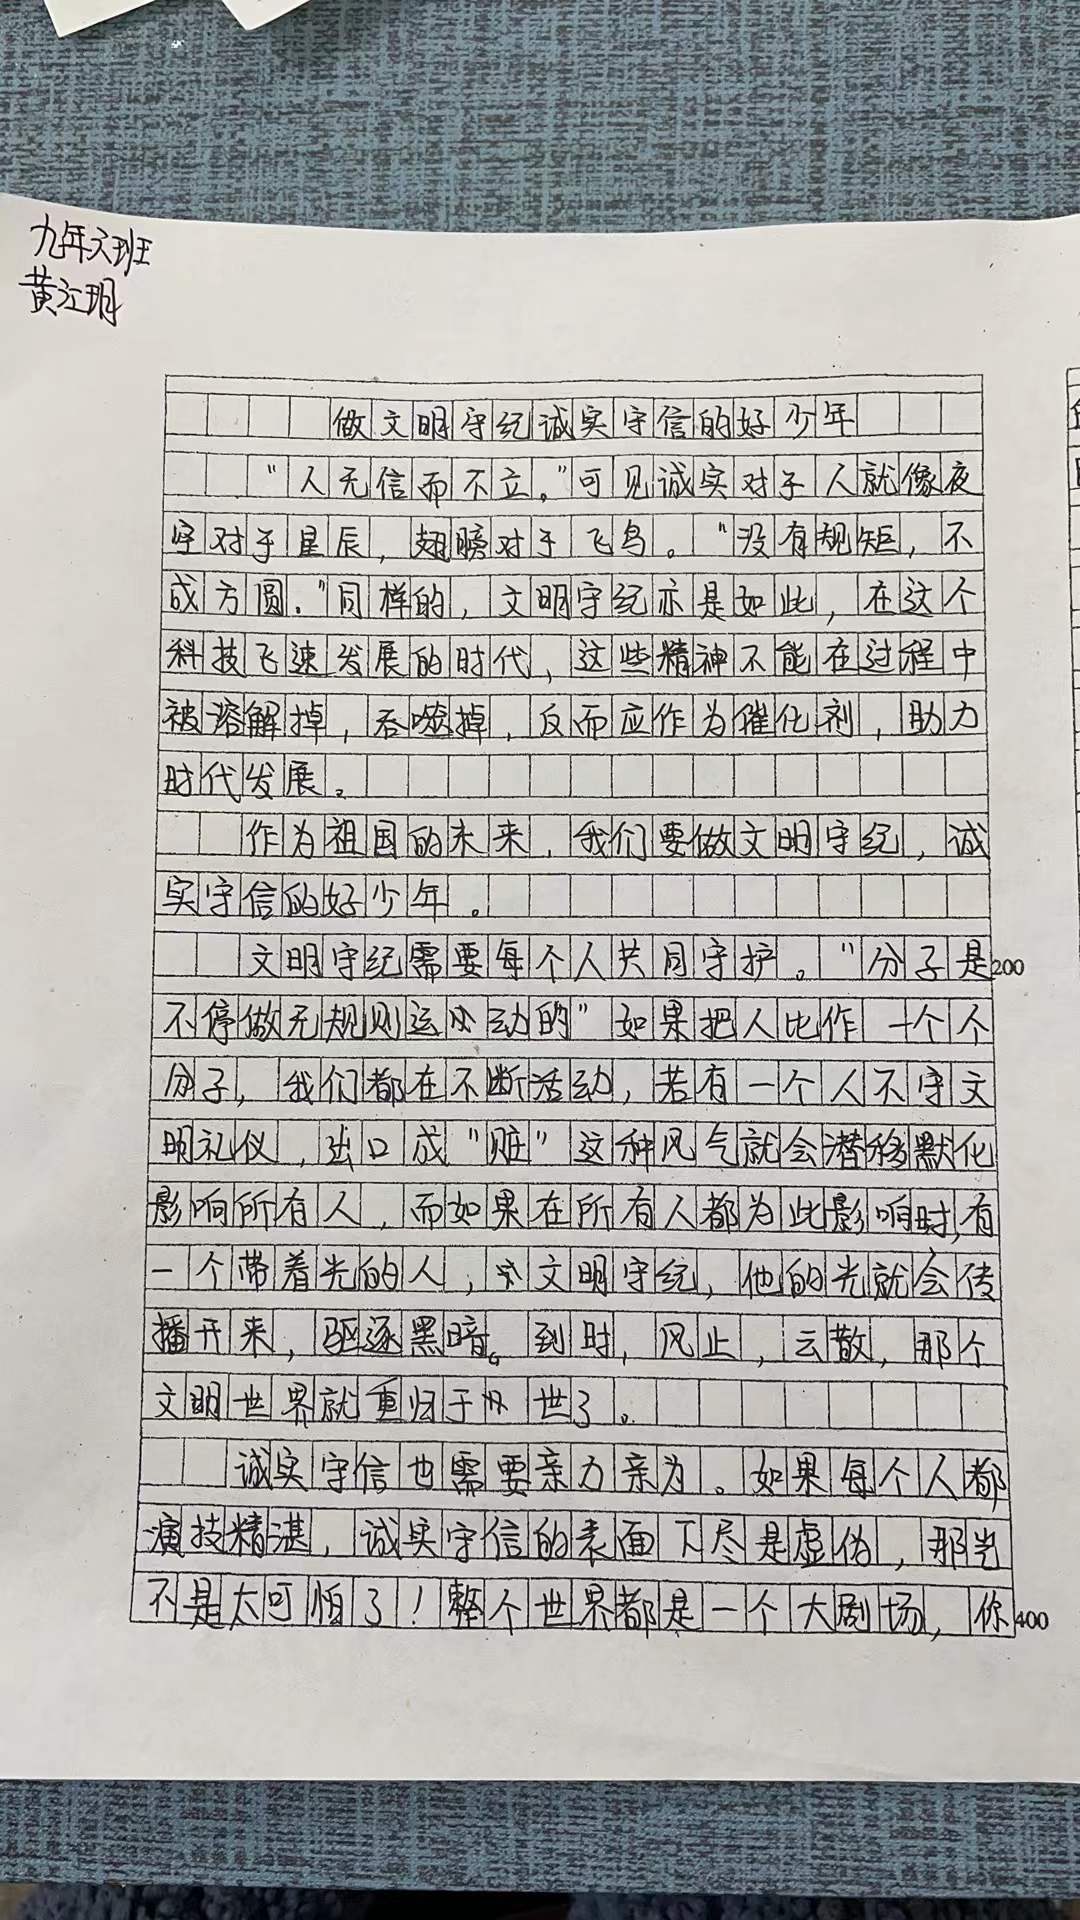 九年六班
黄江玥
做文明守纪诚实守信的好少年
“人无信而不立。”可见诚实对于人就像夜
空对于星辰，翅膀对于飞鸟。“没有规矩，不
成方圆。”同样的，文明守纪亦是如此，在这个
科技飞速发展的时代，这些精神不能在过程中
被溶解掉，吞噬掉，反而应作为催化剂，助力
时代发展。
作为祖国的未来，我们要做文明守纪，诚
实守信的好少年。
文明守纪需要每个人共同守护。“分子是
200
不停做无规则运动的”如果把人比作一个个
分子，我们都在不断活动，若有一个人不守文
明礼仪，出口成“脏”这种风气就会潜移默化
影响所有人，而如果在所有人都为此影响时，有
一个带着光的人，文明守纪，他的光就会传
播开来，驱逐黑暗。到时，风止，云散，那个
文明世界就重归于世了。
诚实守信也需要亲力亲为。如果每个人都
演技精湛，诚实守信的表面下尽是虚伪，那岂
不是太可怕了！整个世界都是一个大剧场，你
400